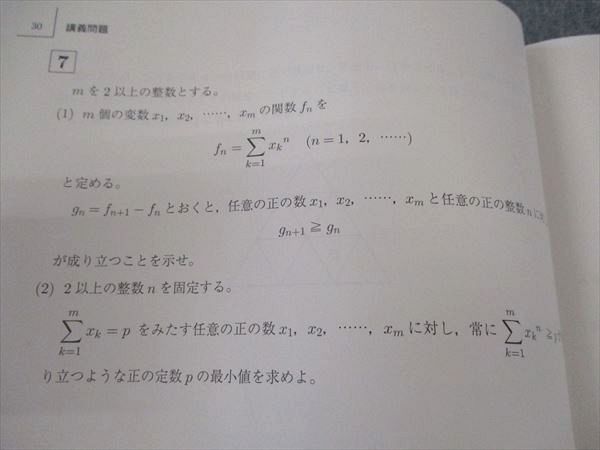 30 講義問題
7
m を 2 以上の整数とする。
(1) m 個の変数 x₁, x₂, ……, xₘ の関数 fₙ を
fₙ = ∑_{k=1}^{m} xₖⁿ (n = 1, 2, ……)
と定める。
gₙ = fₙ₊₁ − fₙ とおくと, 任意の正の数 x₁, x₂, ……, xₘ と任意の正の整数 n に
gₙ₊₁ ≧ gₙ
が成り立つことを示せ。
(2) 2 以上の整数 n を固定する。
∑_{k=1}^{m} xₖ = p をみたす任意の正の数 x₁, x₂, ……, xₘ に対し, 常に ∑_{k=1}^{m} xₖⁿ ≧
り立つような正の定数 p の最小値を求めよ。